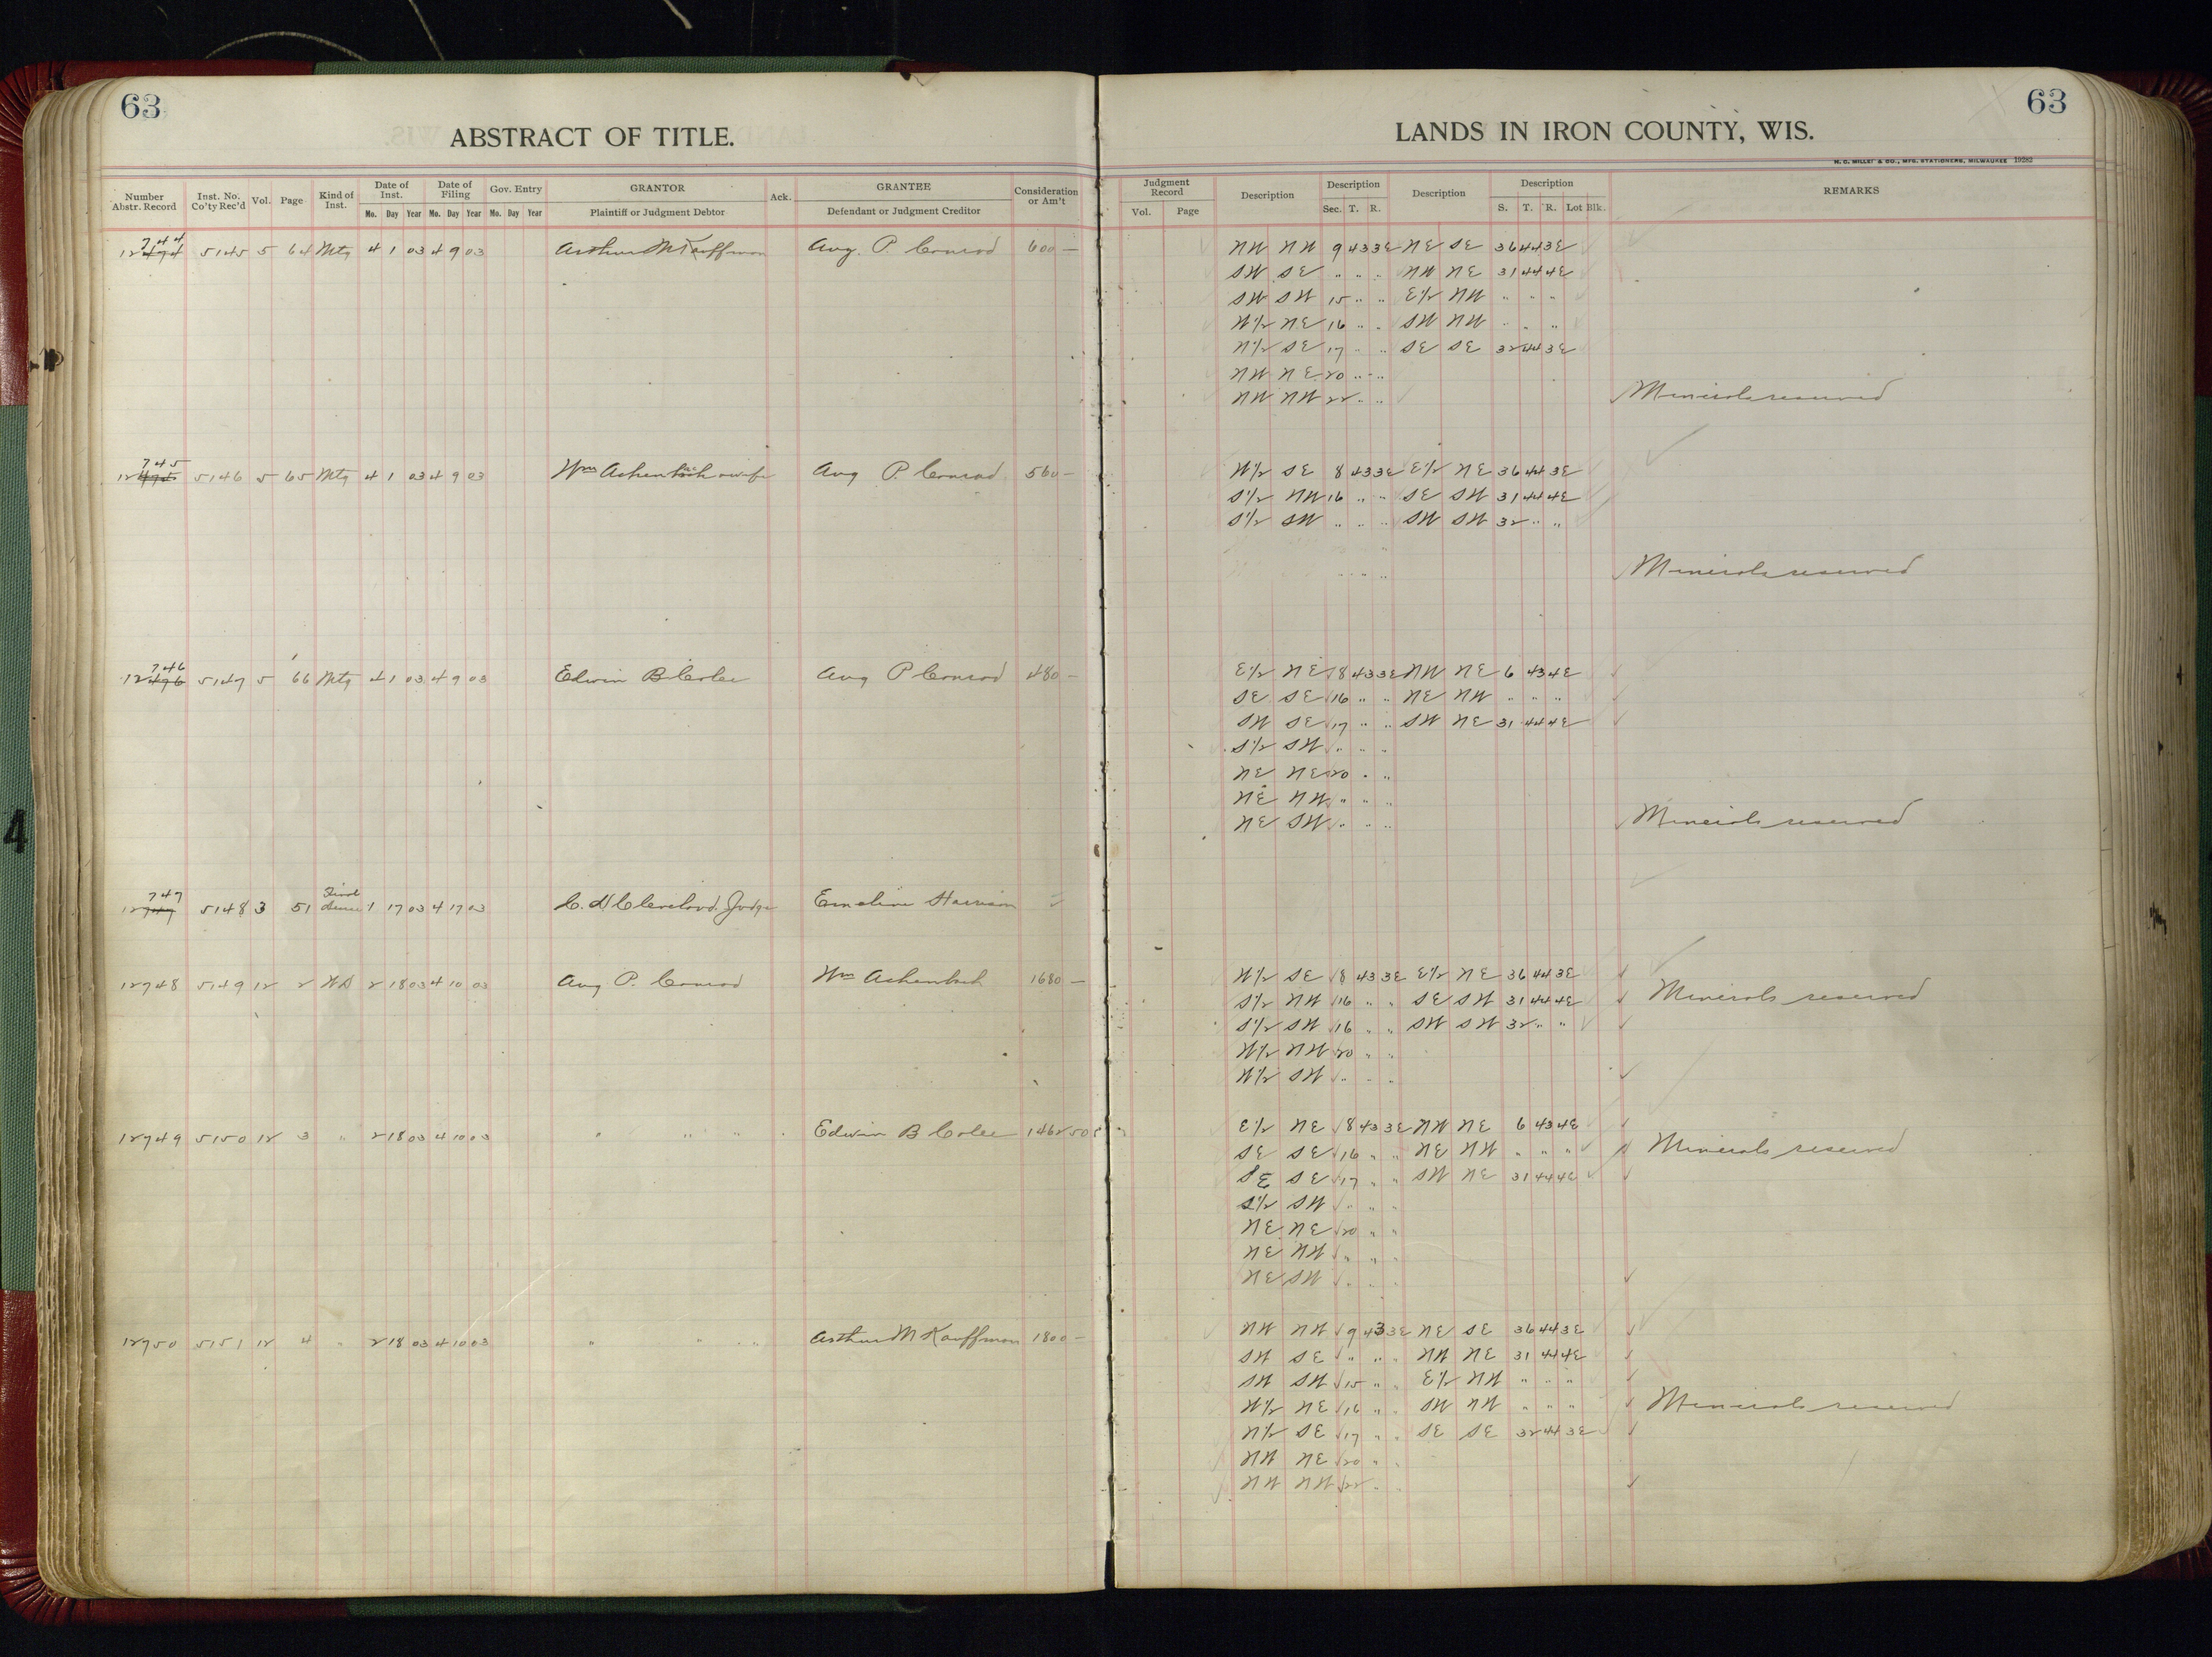 63
ABSTRACT OF TITLE.
Number Abstr. Record | Inst. No. Co'ty Rec'd | Vol. | Page | Kind of Inst. | Date of Inst. Mo. Day Year | Date of Filing Mo. Day Year | Gov. Entry Mo. Day Year | GRANTOR Plaintiff or Judgment Debtor | Ack. | GRANTEE Defendant or Judgment Creditor | Consideration or Am't
744
12494 5145 5 64 Mtg 4 1 03 4 9 03 Arthur M Kauffman Aug. P. Conrad 600 —
745
12495 5146 5 65 Mtg 4 1 03 4 9 03 Wm Achenbach & wife Aug P. Conrad 560 —
746
12496 5147 5 66 Mtg 4 1 03 4 9 03 Edwin B Colee Aug P Conrad 480 —
747 Final
12747 5148 3 51 1 17 03 4 17 03 C. H Cleveland. Judge Emeline Harrison
12748 5149 12 2 WD 2 18 03 4 10 03 Aug P. Conrad Wm Achenbach 1680 —
12749 5150 12 3 " 2 18 03 4 10 03 " " " Edwin B Colee 1462 50
12750 5151 12 4 " 2 18 03 4 10 03 " " " Arthur M Kauffman 1800 —
63
LANDS IN IRON COUNTY, WIS.
H. C. MILLER & CO., MFG. STATIONERS, MILWAUKEE 19282
Judgment Record Vol. Page | Description | Description Sec. T. R. | Description | Description S. T. R. Lot Blk. | REMARKS
NW NW 9 43 3E NE SE 36 44 3E
SW SE " " " NW NE 31 44 4E
SW SW 15 " " E½ NW " " "
W½ NE 16 " " SW NW " " "
N½ SE 17 " " SE SE 32 44 3E
NW NE 20 " "
NW NW 22 " " Minerals reserved
W½ SE 8 43 3E E½ NE 36 44 3E
S½ NW 16 " " SE SW 31 44 4E
S½ SW " " " SW SW 32 " "
Minerals reserved
E½ NE 8 43 3E NW NE 6 43 4E
SE SE 16 " " NE NW " " "
SW SE 17 " " SW NE 31 44 4E
S½ SW " " "
NE NE 20 " "
NE NW " " "
NE SW " " " Minerals reserved
W½ SE 8 43 3E E½ NE 36 44 3E
S½ NW 16 " " SE SW 31 44 4E Minerals reserved
S½ SW 16 " " SW SW 32 " "
W½ NW 20 " "
W½ SW " " "
E½ NE 8 43 3E NW NE 6 43 4E
SE SE 16 " " NE NW " " " Minerals reserved
SE SE 17 " " SW NE 31 44 4E
S½ SW " " "
NE NE 20 " "
NE NW " " "
NE SW " " "
NW NW 9 43 3E NE SE 36 44 3E
SW SE " " " NW NE 31 44 4E
SW SW 15 " " E½ NW " " "
W½ NE 16 " " SW NW " " " Minerals reserved
N½ SE 17 " " SE SE 32 44 3E
NW NE 20 " "
NW NW 22 " "
4